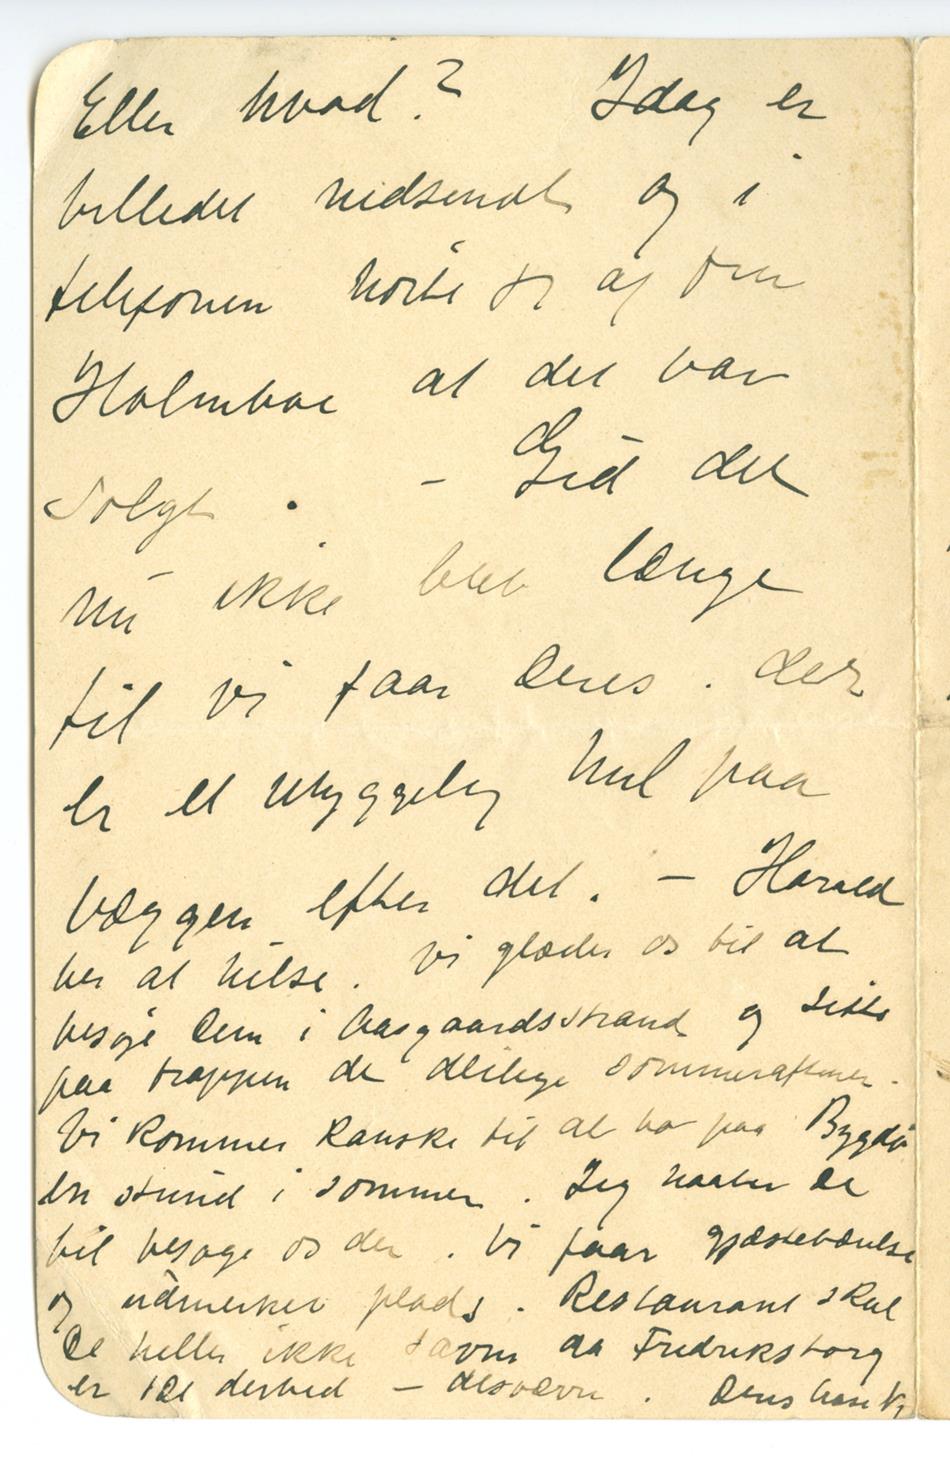 Eller hvad? Idag er
billedet nedsendt og i
telefonen hørte jeg af fru
Holmboe at det var
solgt. – Gid det
nu ikke blev længe
til vi faar Deres. Der
er et uhyggelig hul paa
væggen efter det. – Harald
ber at hilse. Vi glæder os til at
besøge Dem i Aasgaardsstrand og sidde
paa trappen de deilige sommeraftener.
Vi kommer kanske til at bo paa Bygdø
en stund i sommer. Jeg haaber De
vil besøge os der. Vi faar gjesteværelse
og udmerket plads. Restaurant skal
De heller ikke savne da Fredriksborg
er tæt derved – desværre. Deres Aase